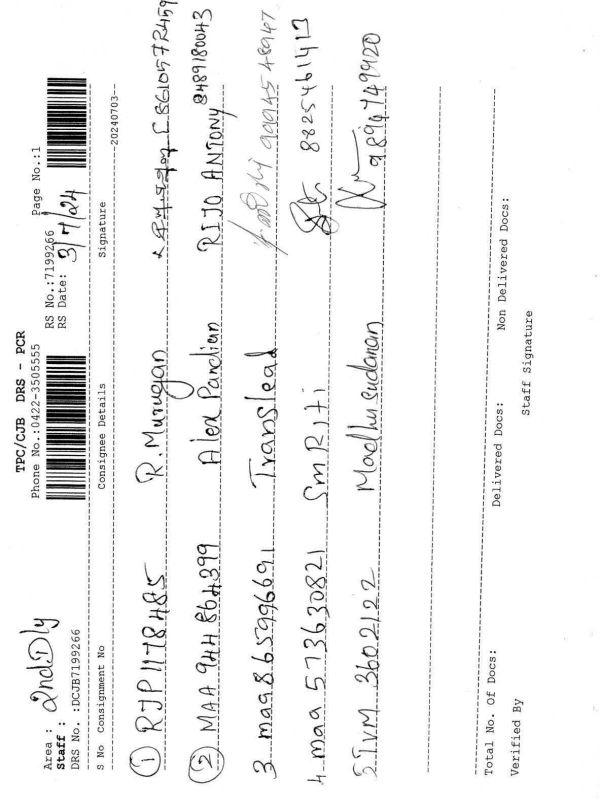 TPC/CJB DRS - PCR
Area : 2nd Dly
Phone No.:0422-3505555
RS No.:7199266 Page No.:1
Staff :
RS Date: 3/7/24
DRS No. :DCJB7199266
S No Consignment No Consignee Details Signature
--20240703--
1 RJP1178485 R. Murugan 861057R459
2 MAA 944864399 Alex Pandian RIJO ANTONY 8489180043
3 maa865996691 Translead 9994548947
4 maa 573630821 SmRiti 8825461413
5 TVM 3602122 Madhusudanan 9894749920
Total No. Of Docs: Delivered Docs: Non Delivered Docs:
Verified By Staff Signature